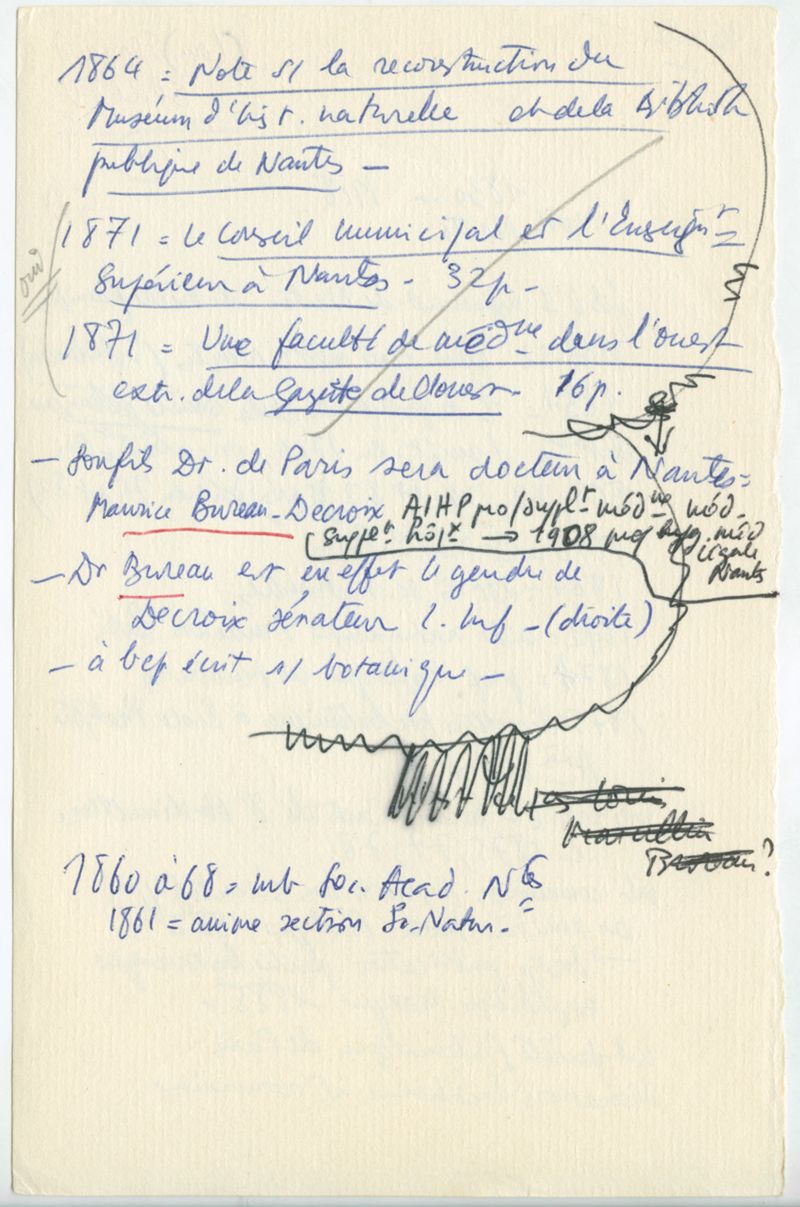 1864 = Note s/ la reconstruction du
Muséum d'hist. naturelle et de la Biblioth
publique de Nantes –
1871 = Le Conseil municipal et l'Enseignt
Supérieur à Nantes - 32p -
1871 = Une faculté de médne dans l'ouest
extr. de la Gazette de l'ouest - 16 p.
– Son fils Dr. de Paris sera docteur à Nantes =
Maurice Bureau-Decroix AIHP suplt médne méd-
supplt hôpx → 1908 méd
légale
Nantes
– Dr Bureau est en effet le gendre de
Decroix sénateur L. Inf - (droite)
– à bcp écrit s/ botanique –
Louis
Bureau?
1860 à 68 = mb Soc. Acad. Ntes
1861 = anime section Sc. Natur. -